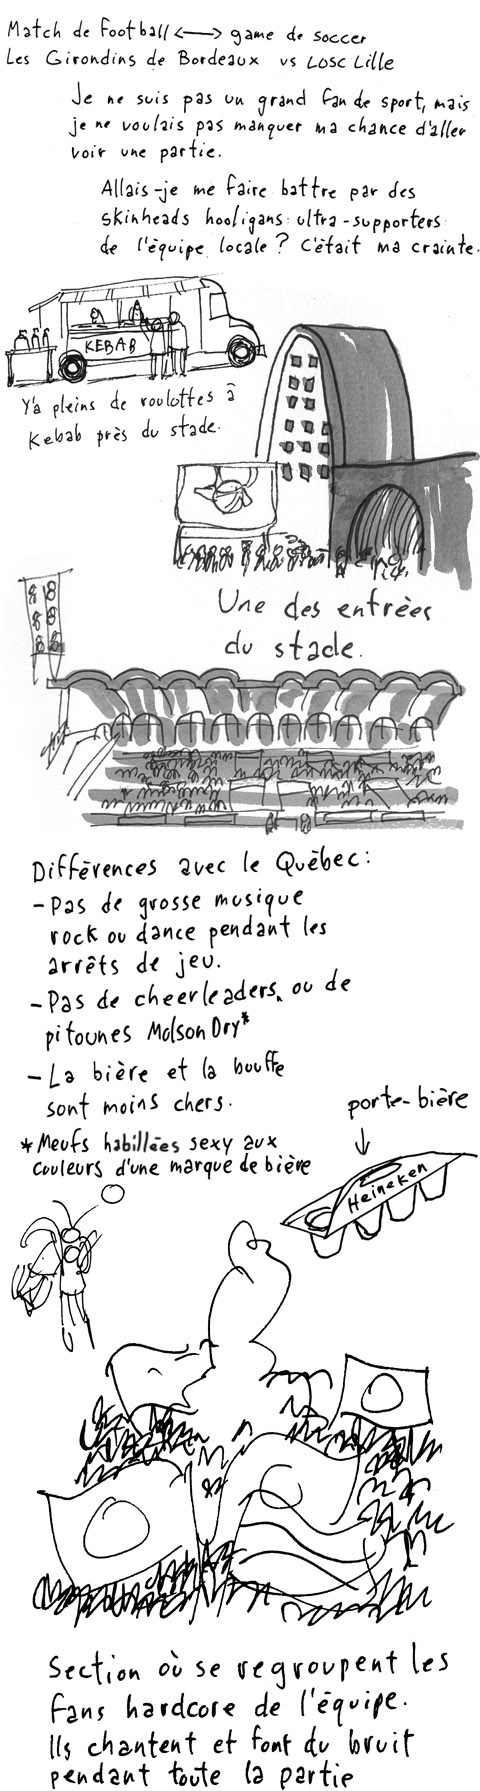 Match de Football <—> game de soccer
Les Girondins de Bordeaux vs LOSC Lille
Je ne suis pas un grand fan de sport, mais
je ne voulais pas manquer ma chance d'aller
voir une partie.
Allais-je me faire battre par des
skinheads hooligans ultra-supporters
de l'équipe locale? C'était ma crainte.
KEBAB
Y'a pleins de roulottes à
Kebab près du stade.
Une des entrées
du stade.
Différences avec le Québec:
- Pas de grosse musique
rock ou dance pendant les
arrêts de jeu.
- Pas de cheerleaders ou de
pitounes Molson Dry*
- La bière et la bouffe
sont moins chers.
porte-bière
* Meufs habillées sexy aux
couleurs d'une marque de bière
Heineken
Section où se regroupent les
fans hardcore de l'équipe.
Ils chantent et font du bruit
pendant toute la partie